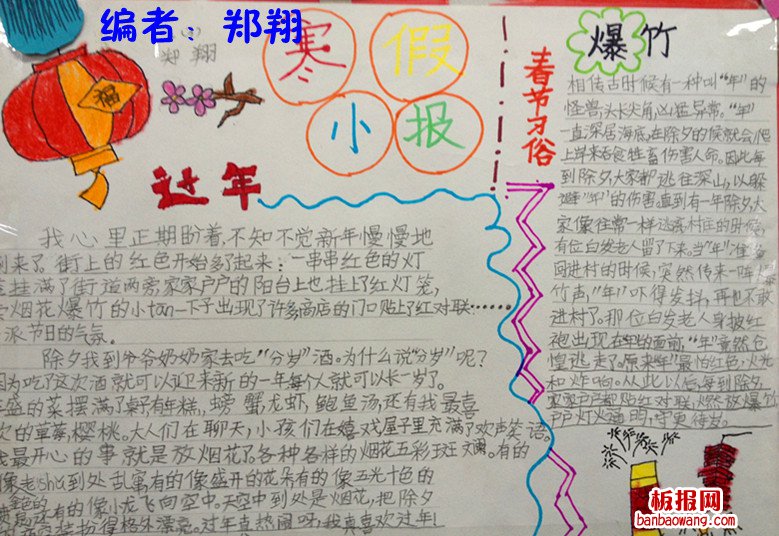 编者：郑翔
郑翔
寒假
小报
过年
我心里正期盼着,不知不觉新年慢慢地
到来了。街上的红色开始多了起来：一串串红色的灯
挂满了街道两旁家家户户的阳台上也挂上了红灯笼,
烟花爆竹的小tan一下子出现了许多商店的门口贴上了红对联……
派节日的气氛。
除夕我到爷爷奶奶家去吃“分岁”酒。为什么说“分岁”呢?
因为吃了这次酒就可以迎来新的一年每个人就可以长一岁了。
盛的菜摆满了桌子有年糕,螃蟹龙虾,鲍鱼汤,还有我最喜
欢的草莓樱桃。大人们在聊天,小孩们在嬉戏屋子里充满了欢声笑语。
我最开心的事就是放烟花了。各种各样的烟花五彩斑斓。有的
像老shu到处乱窜有的像盛开的花朵有的像五光十色的
金色的
有的像小龙飞向空中。天空中到处是烟花,把除夕
装扮得格外漂亮。过年真热闹呀,我真喜欢过年!
春节习俗
爆竹
相传古时候有一种叫“年”的
怪兽,头长尖角,凶猛异常。“年”
一直深居海底,在除夕的候就会爬
上岸来吞食牲畜伤害人命。因此每
到除夕,大家都逃往深山,以躲
避“年”的伤害直到有一年除夕大
家像往常一样逃离村庄的时候,
有位白发老人留了下来。当“年”准备
闯进村的时候,突然传来一阵爆
竹声,“年”吓得发抖,再也不敢
进村了。那位白发老人身披红
袍出现在年的面前,“年”竟然仓
惶逃走了。原来“年”最怕红色,火光
和炸响。从此以后,每到除夕
家家户户都贴红对联,燃放爆竹
户户灯火通明,守更待岁。
福
板报网
banbaowang.com